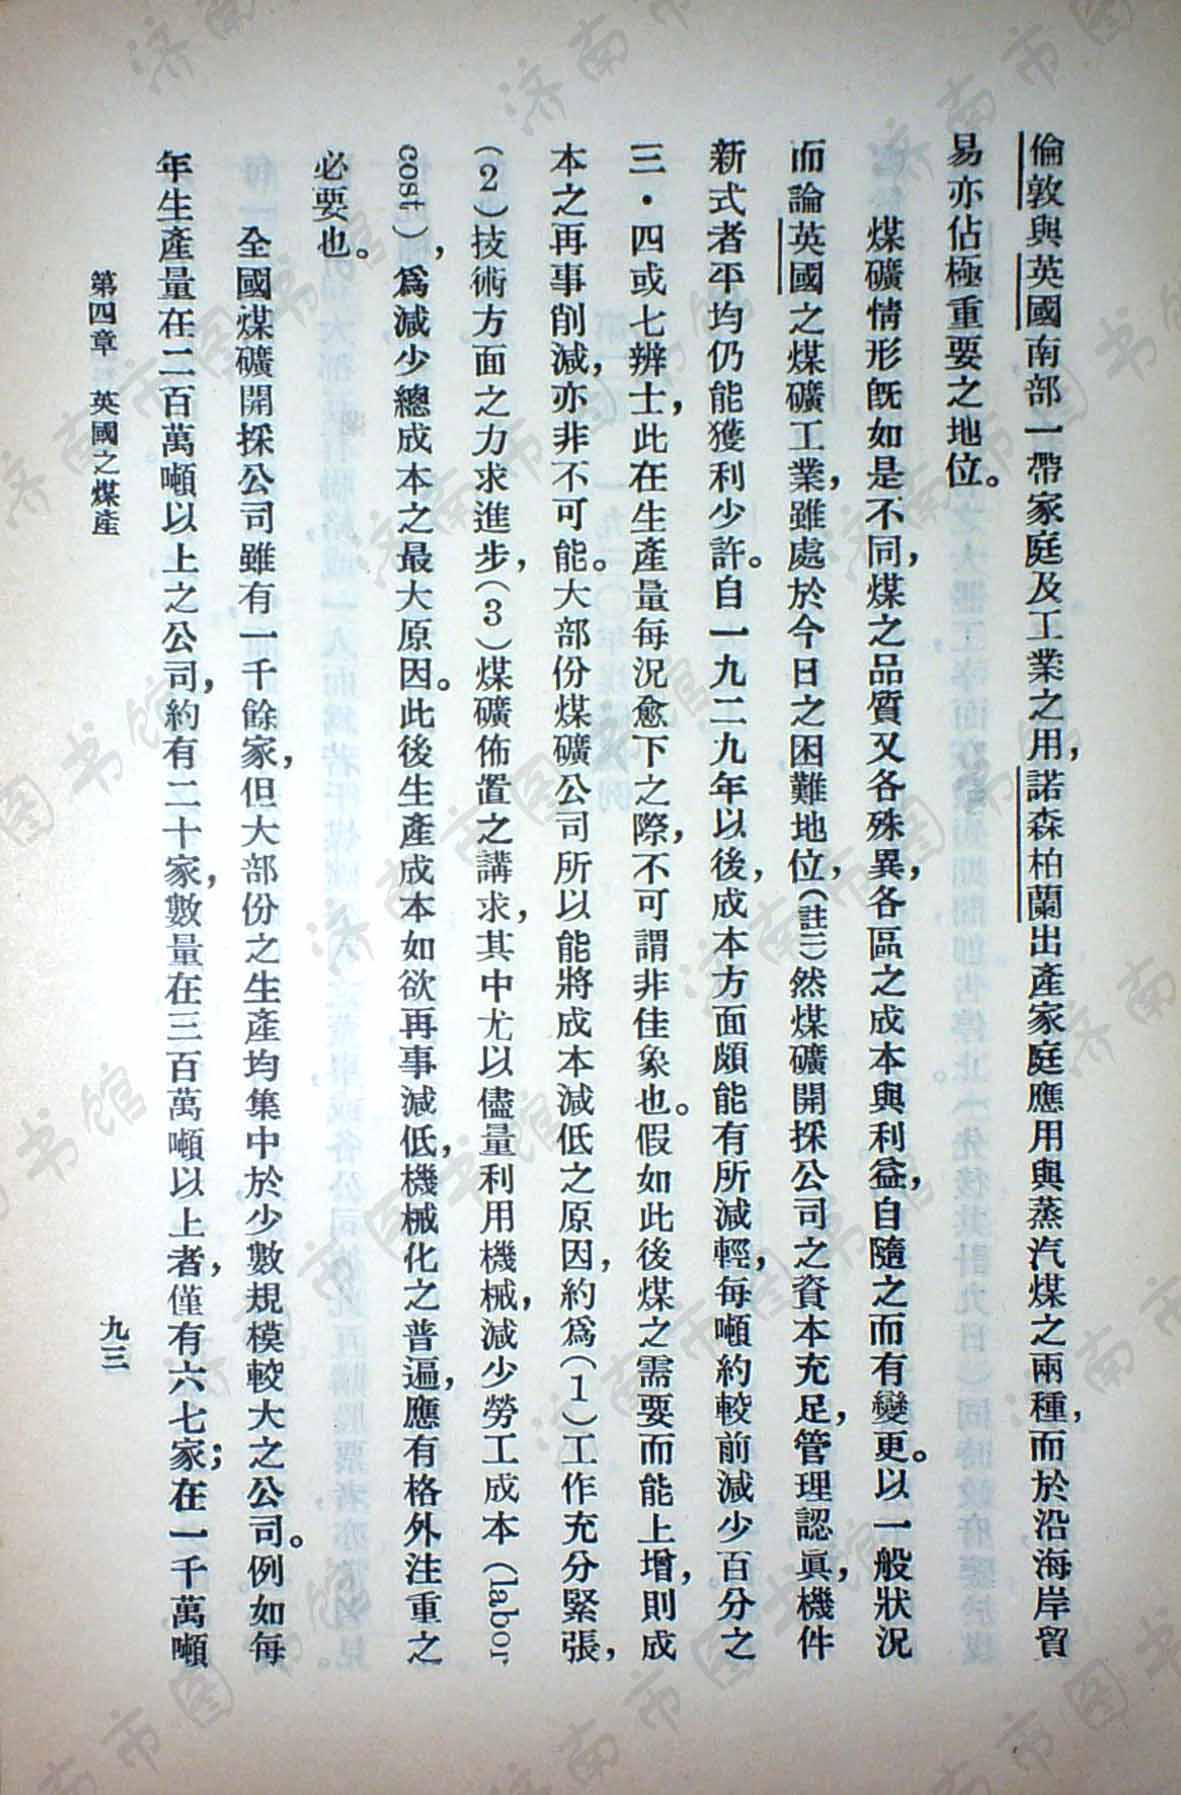 倫敦與英國南部一帶家庭及工業之用，諾森柏蘭出產家庭應用與蒸汽煤之兩種，而於沿海岸貿
易亦佔極重要之地位。
煤礦情形旣如是不同，煤之品質又各殊異，各區之成本與利益，自隨之而有變更。以一般狀況
而論英國之煤礦工業，雖處於今日之困難地位，（註三）然煤礦開採公司之資本充足，管理認眞，機件
新式者平均仍能獲利少許。自一九二九年以後，成本方面頗能有所減輕，每噸約較前減少百分之
三·四或七辨士，此在生產量每況愈下之際，不可謂非佳象也。假如此後煤之需要而能上增，則成
本之再事削減，亦非不可能。大部份煤礦公司所以能將成本減低之原因，約爲（1）工作充分緊張，
（2）技術方面之力求進步，（3）煤礦佈置之講求，其中尤以儘量利用機械，減少勞工成本（labor
cost），爲減少總成本之最大原因。此後生產成本如欲再事減低，機械化之普遍，應有格外注重之
必要也。
全國煤礦開採公司雖有一千餘家，但大部份之生產均集中於少數規模較大之公司。例如每
年生產量在二百萬噸以上之公司，約有二十家，數量在三百萬噸以上者，僅有六七家；在一千萬噸
第四章 英國之煤產
九三
济南市图书馆